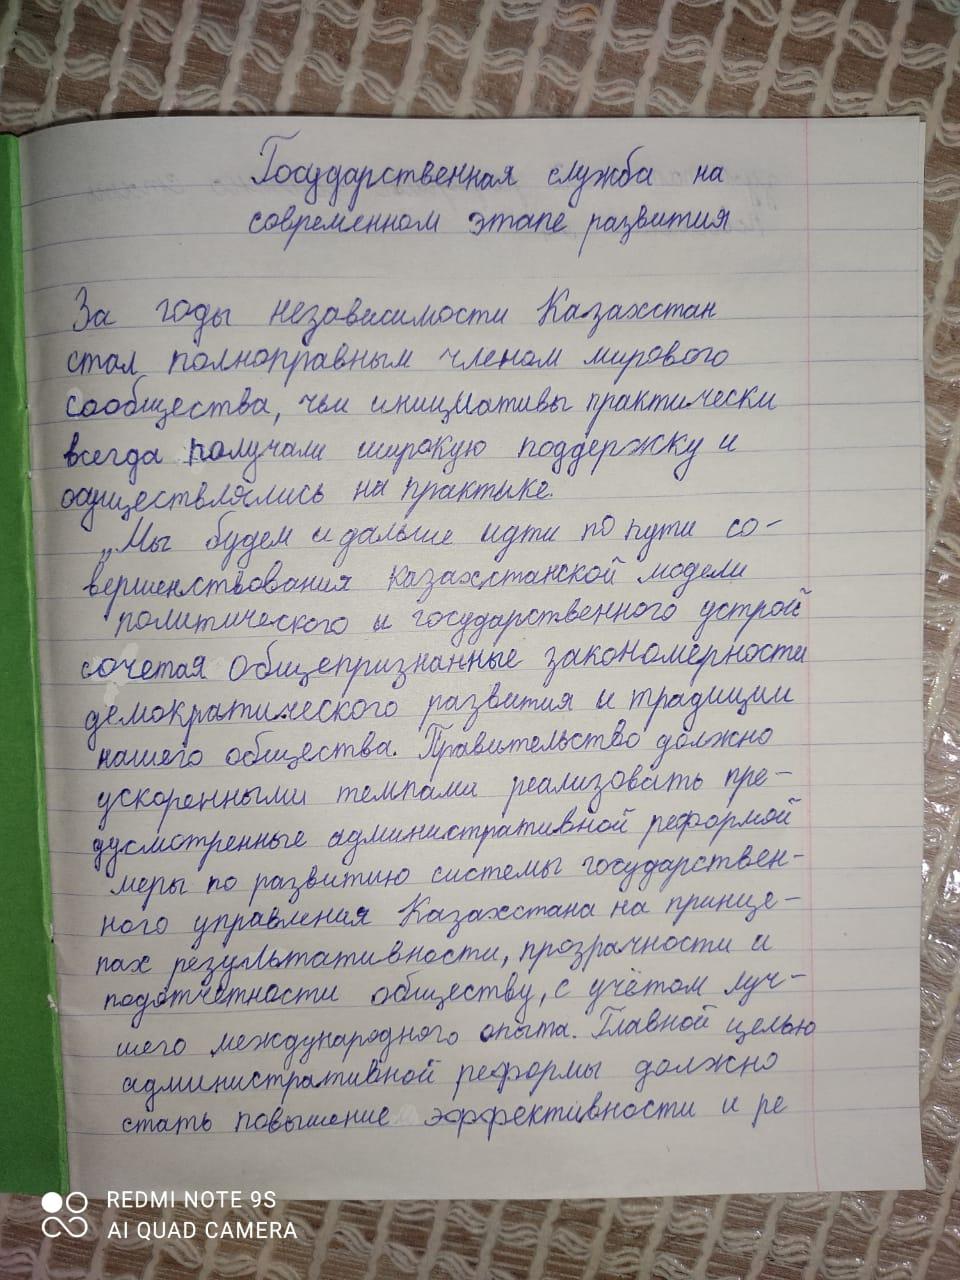 Государственная служба на
современном этапе развития
За годы независимости Казахстан
стал полноправным членом мирового
сообщества, чьи инициативы практически
всегда получали широкую поддержку и
осуществлялись на практике.
„Мы будем и дальше идти по пути со-
вершенствования казахстанской модели
политического и государственного устрой
сочетая общепризнанные закономерности
демократического развития и традиции
нашего общества. Правительство должно
ускоренными темпами реализовать пре-
дусмотренные административной реформой
меры по развитию системы государствен-
ного управления Казахстана на принци-
пах результативности, прозрачности и
подотчётности обществу, с учётом луч-
шего международного опыта. Главной целью
административной реформы должно
стать повышение эффективности и ре
REDMI NOTE 9S
AI QUAD CAMERA